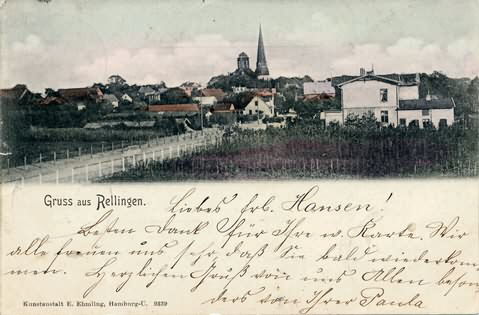 Gruss aus Rellingen.
Liebes Frl. Hansen!
Besten Dank für Ihre w. Karte. Wir
alle freuen uns sehr, daß Sie bald wiederkom
men. Herzlichen Gruß von uns Allen beson
ders von Ihrer Paula
Kunstanstalt E. Ehmling, Hamburg-U. 9339